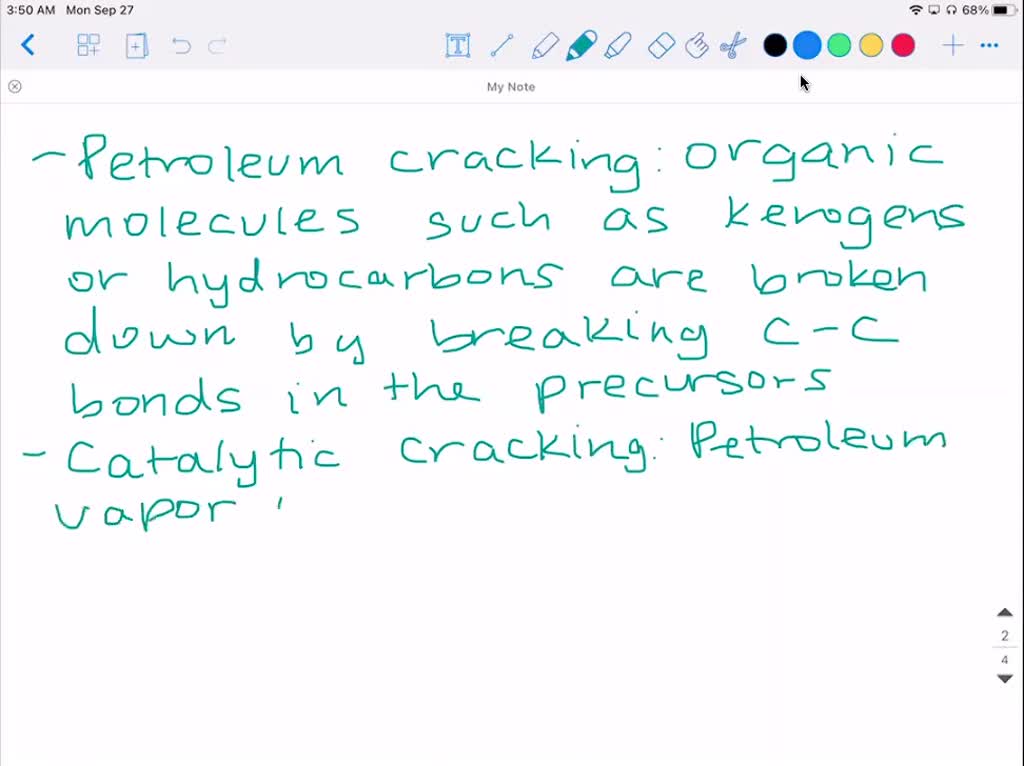 3:50 AM Mon Sep 27 68%
T
My Note
- Petroleum cracking: organic
molecules such as kerogens
or hydrocarbons are broken
down by breaking C-C
bonds in the precursors
- Catalytic cracking: Petroleum
vapor
2
4